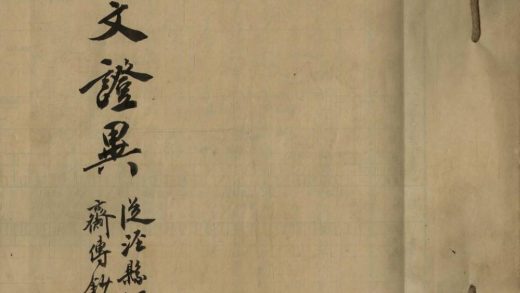 文證異
從涇縣
齋傳鈔